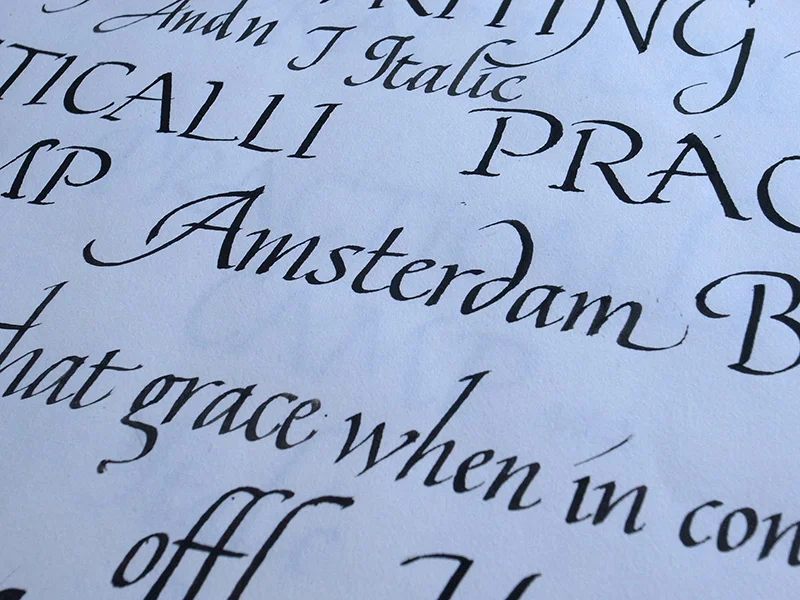 Andn I Italic
TICALLI PRAC
Amsterdam B
that grace when in con
offl